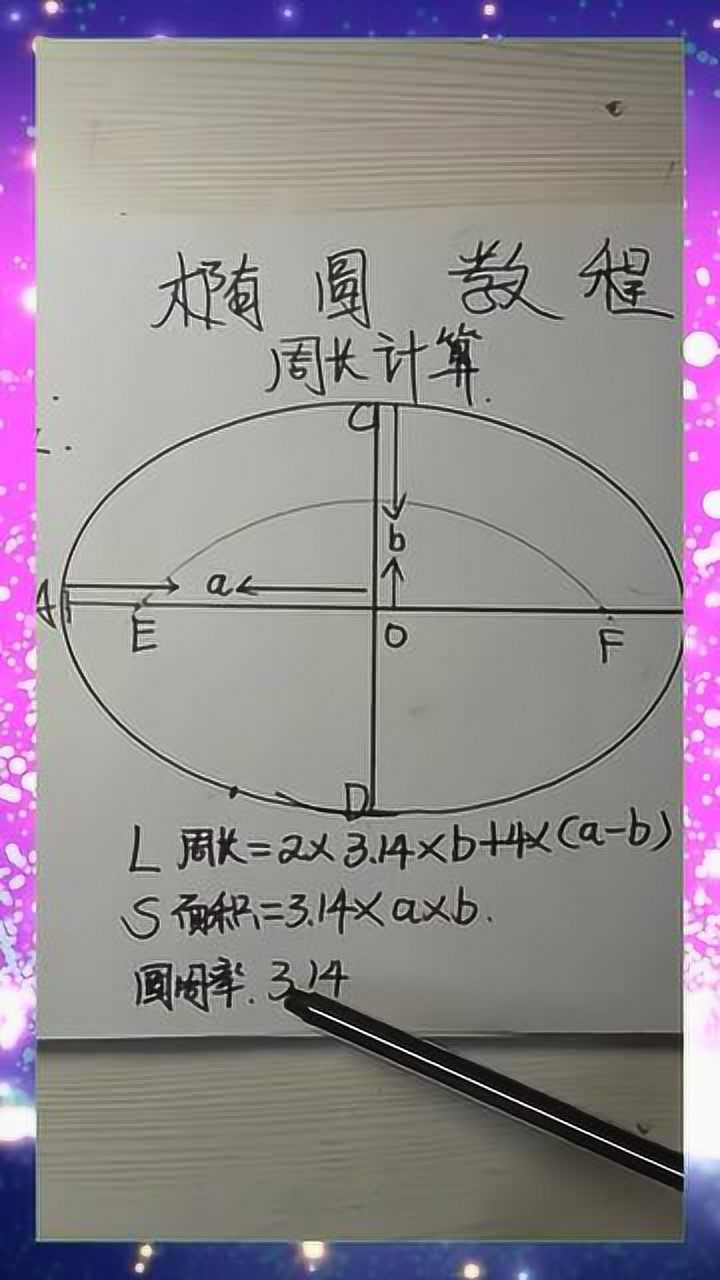 椭圆教程
周长计算.
C
b
A
a
E
O
F
D
L 周长=2×3.14×b+4×(a-b)
S 面积=3.14×a×b.
圆周率.3.14